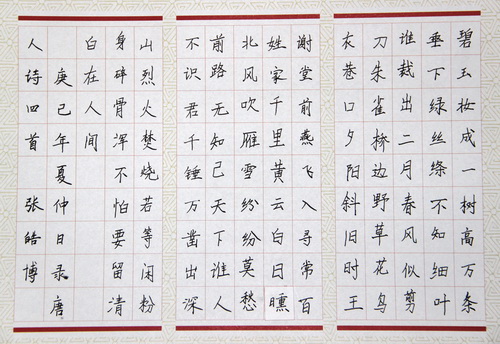 碧玉妆成一树高万条
垂下绿丝绦不知细叶
谁裁出二月春风似剪
刀朱雀桥边野草花乌
衣巷口夕阳斜旧时王
谢堂前燕飞入寻常百
姓家千里黄云白日曛
北风吹雁雪纷纷莫愁
前路无知己天下谁人
不识君千锤万凿出深
山烈火焚烧若等闲粉
身碎骨浑不怕要留清
白在人间
庚己年夏仲日录唐
人诗四首 张皓博